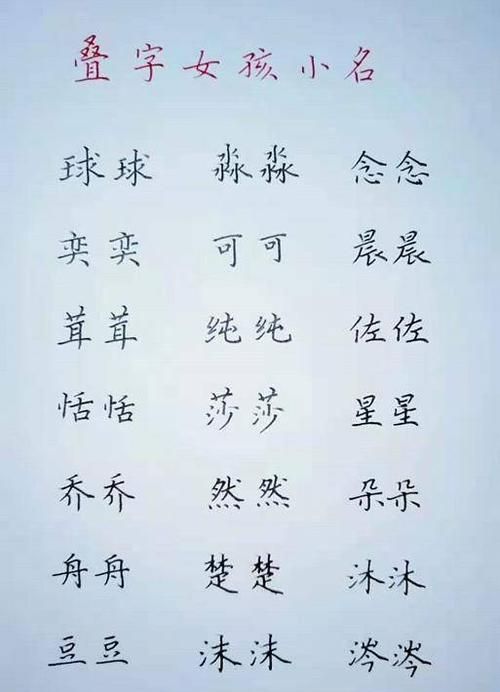 叠字女孩小名
球球 淼淼 念念
奕奕 可可 晨晨
茸茸 纯纯 佐佐
恬恬 莎莎 星星
乔乔 然然 朵朵
舟舟 楚楚 沐沐
豆豆 沫沫 涔涔